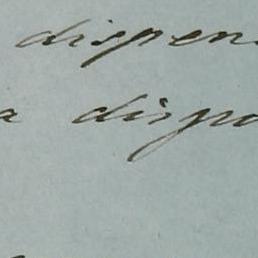 dispen
a dispo